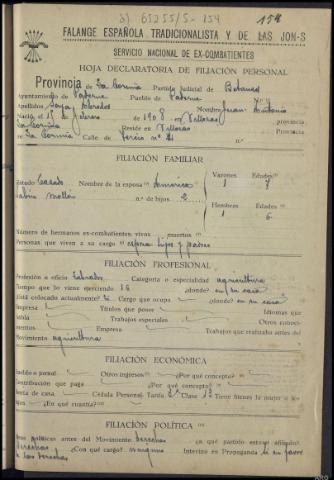 3) 65255/5-154 154
FALANGE ESPAÑOLA TRADICIONALISTA Y DE LAS JON-S
SERVICIO NACIONAL DE EX-COMBATIENTES
HOJA DECLARATORIA DE FILIACIÓN PERSONAL
Provincia de La Coruña Partido Judicial de Betanzos
Ayuntamiento de Paderne Pueblo de Paderne
Apellidos Nombre Juan Antonio
Nació el 15 de febrero de 1908 en Villozas provincia
La Coruña Reside en Villozas Provincia
de La Coruña Calle de
FILIACIÓN FAMILIAR
Estado Casado Nombre de la esposa Varones Edades
n.º de hijos 2 1 7
Hembras Edades
1 6
Número de hermanos ex-combatientes vivos muertos
Personas que viven a su cargo esposa hijos y padres
FILIACIÓN PROFESIONAL
Profesión u oficio Labrador Categoría o especialidad agricultura
Tiempo que lo viene ejerciendo 16 ¿donde? en su casa
Está colocado actualmente? Cargo que ocupa ¿donde? en su casa
Empresa Títulos que posee Idiomas que
Trabajos especiales Otros conoci-
mientos Empresa Trabajos que realizaba antes del
Movimiento agricultura
FILIACIÓN ECONÓMICA
Sueldo o jornal Otros ingresos ¿Por qué concepto?
Contribución que paga ¿Por qué concepto?
Renta de casa Cédula Personal Tarifa Clase 13 Tiene bienes la mujer o hi-
jos ¿En qué cuantía?
FILIACIÓN POLÍTICA
políticas antes del Movimiento derechas en qué partido estuvo afiliado?
derechas ¿Con qué cargo? ninguno Intervino en Propaganda si en favor
de las derechas